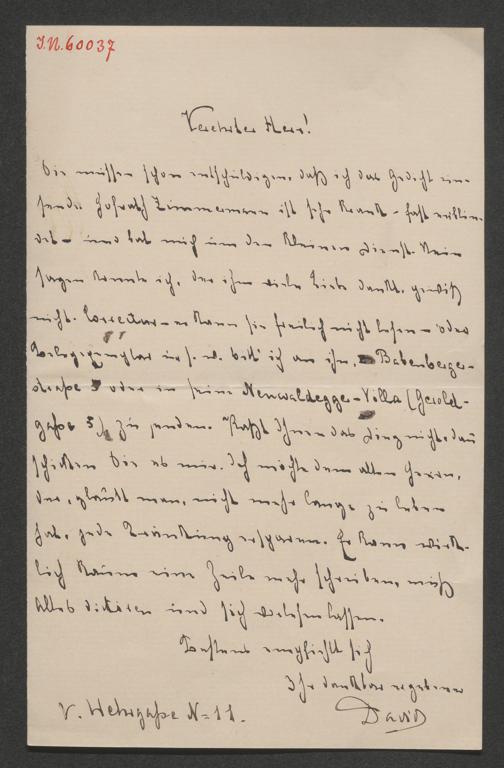 I.N. 60037
Verehrter Herr!
Sie müssen schon entschuldigen, daß ich das Gedicht ein-
sende. Hofrath Zimmermann ist sehr krank - fast erblin-
det - und bat mich um den kleinen Dienst. Nein
sagen konnte ich, der ihm viele Liebe dankt, gewiß
nicht. Correctur - er kann sie freilich nicht lesen - oder
Belegexemplar u. s. w. bitt' ich an ihn, Babenberger-
straße 5 oder in seine Neuwaldegger-Villa (Gerold-
gaße 5) zu senden. Paßt Ihnen das Ding nicht, dann
schicken Sie es mir. Ich möchte dem alten Herrn,
der, glaubt man, nicht mehr lange zu leben
hat, jede Kränkung ersparen. Er kann wirk-
lich kaum eine Zeile mehr schreiben, muß
alles dictiren und sich vorlesen lassen.
Bestens empfiehlt sich
Ihr dankbar ergebener
David
V. Wehrgaße N= 11.